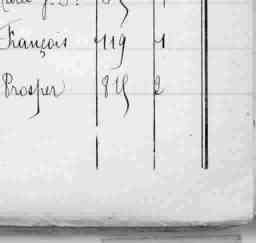 François 119 1
Prosper 815 2